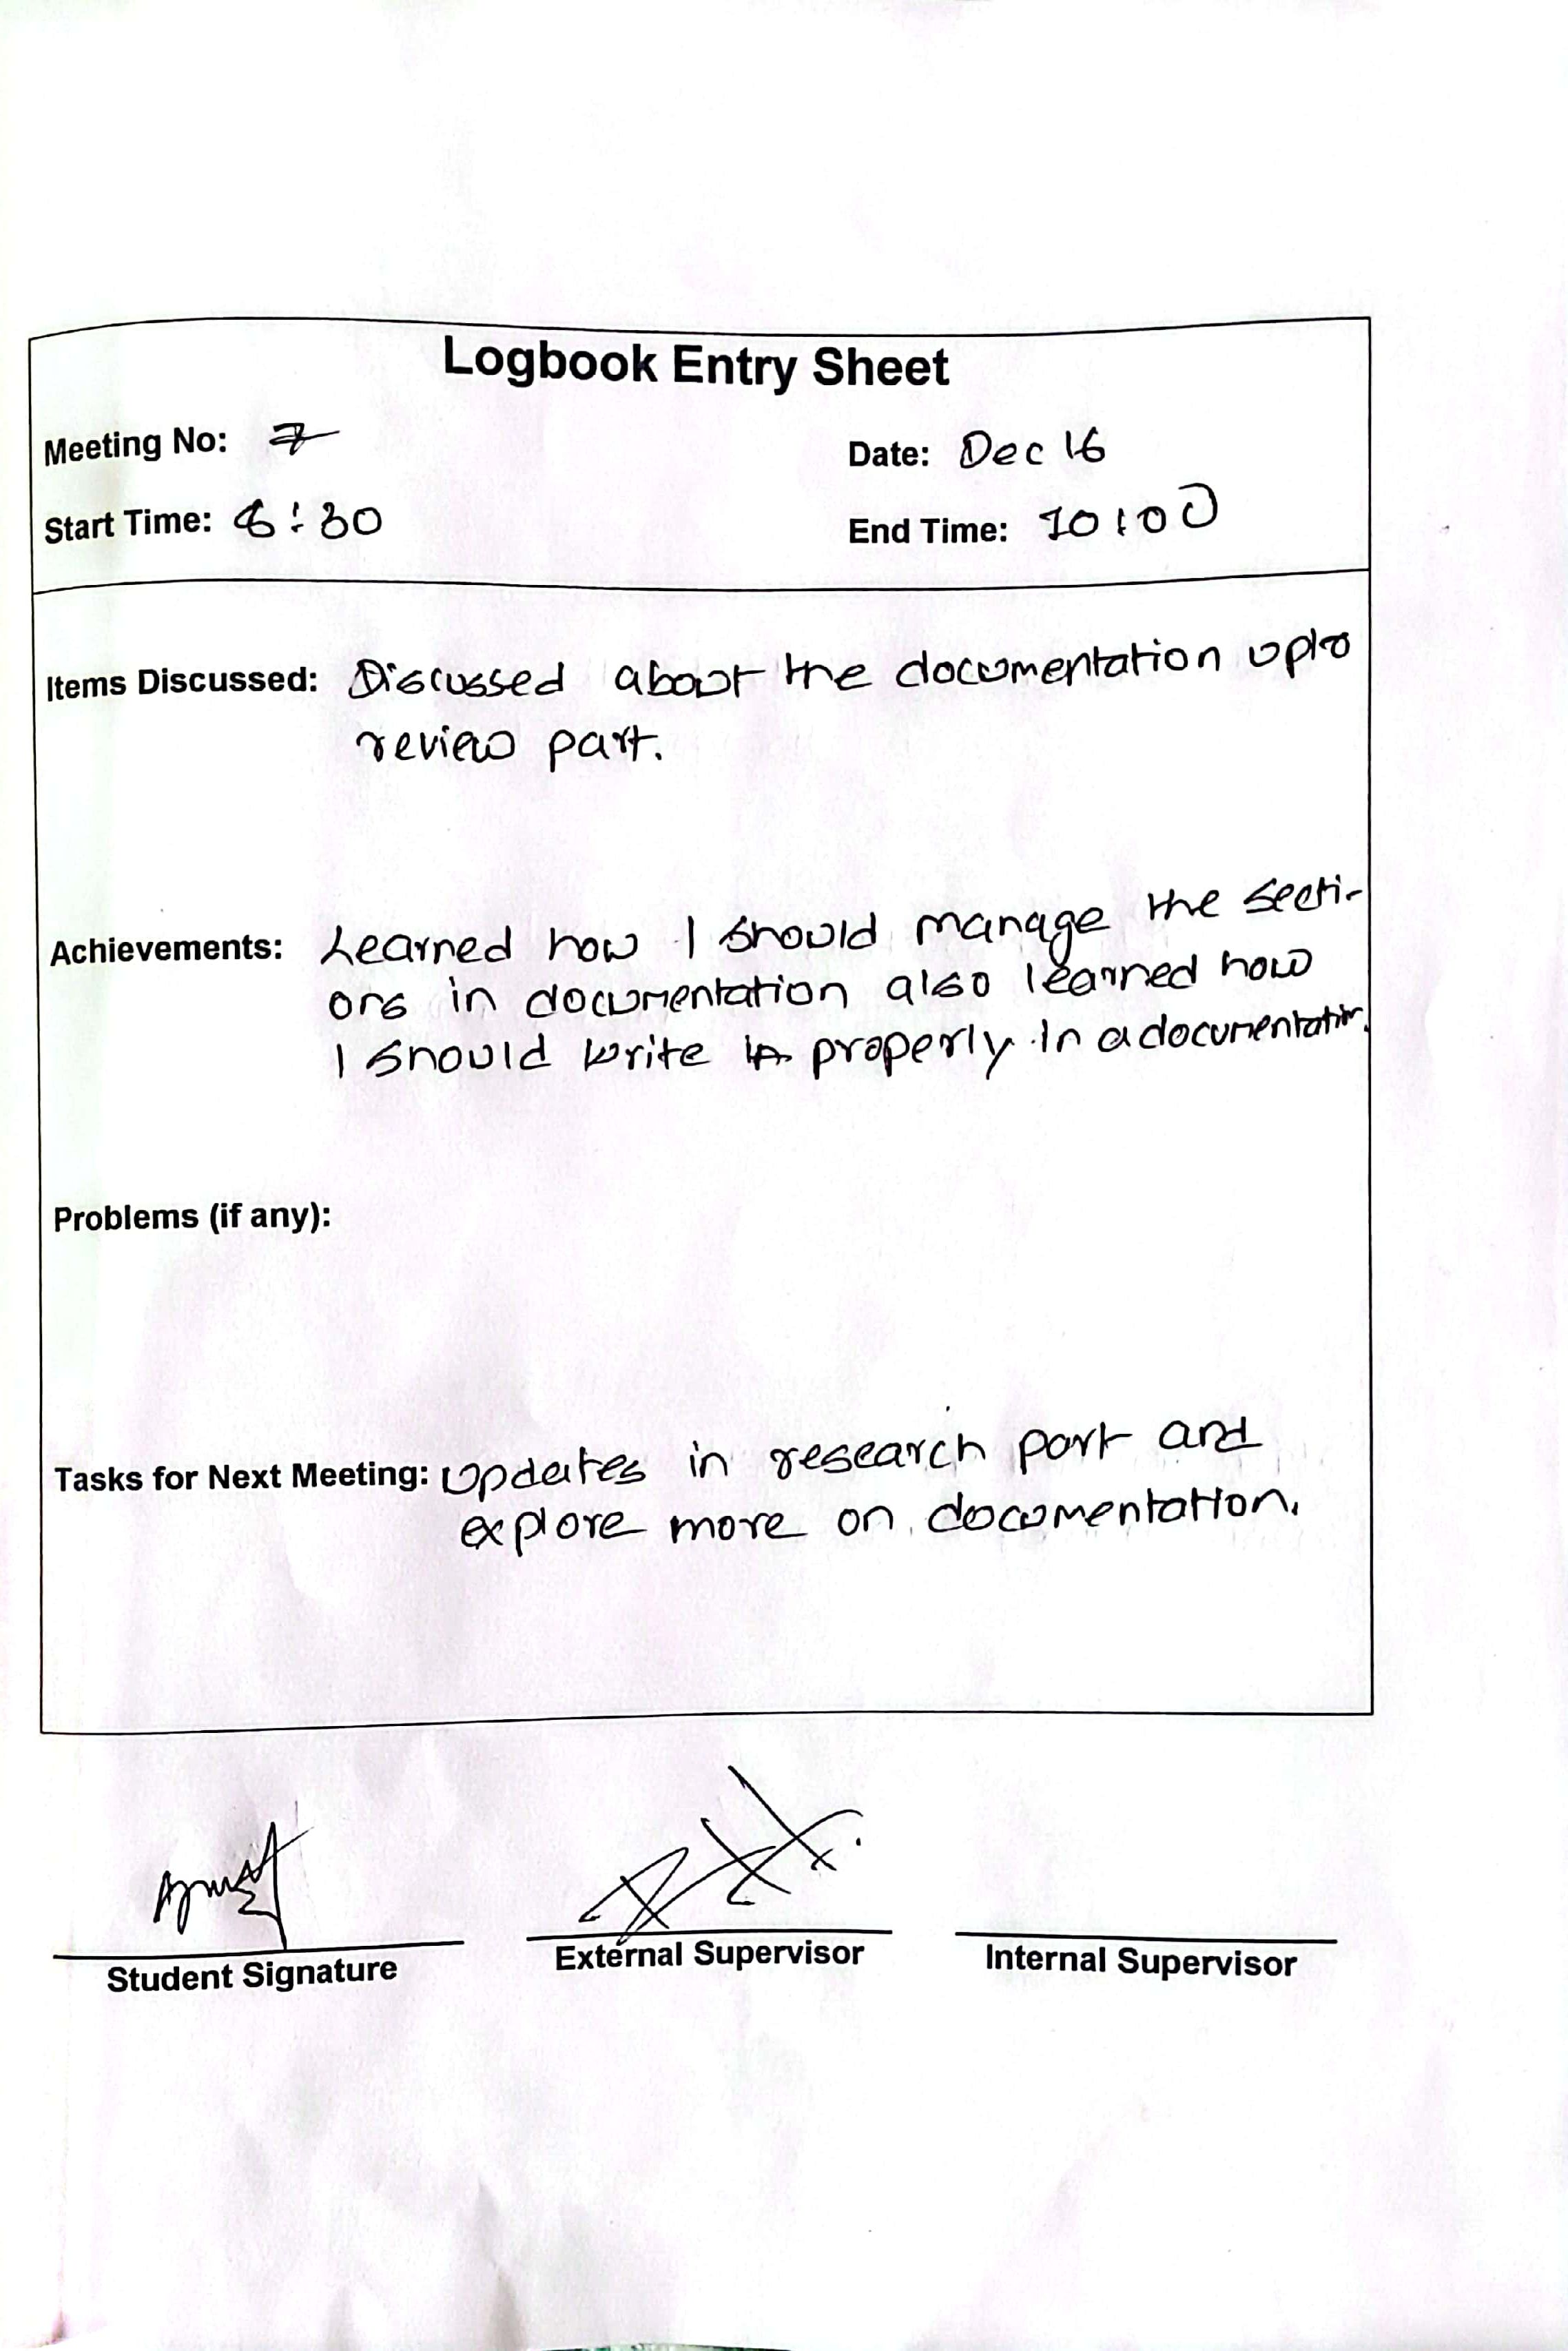 Logbook Entry Sheet
Meeting No: 7
Date: Dec 16
Start Time: :30
End Time: 10:00
Items Discussed: Discussed about the documentation upto
review part.
Achievements: Learned how I should manage the secti-
ons in documentation also learned how
I should write properly in a documentation.
Problems (if any):
Tasks for Next Meeting: Updates in research part and
explore more on documentation.
Student Signature
External Supervisor
Internal Supervisor